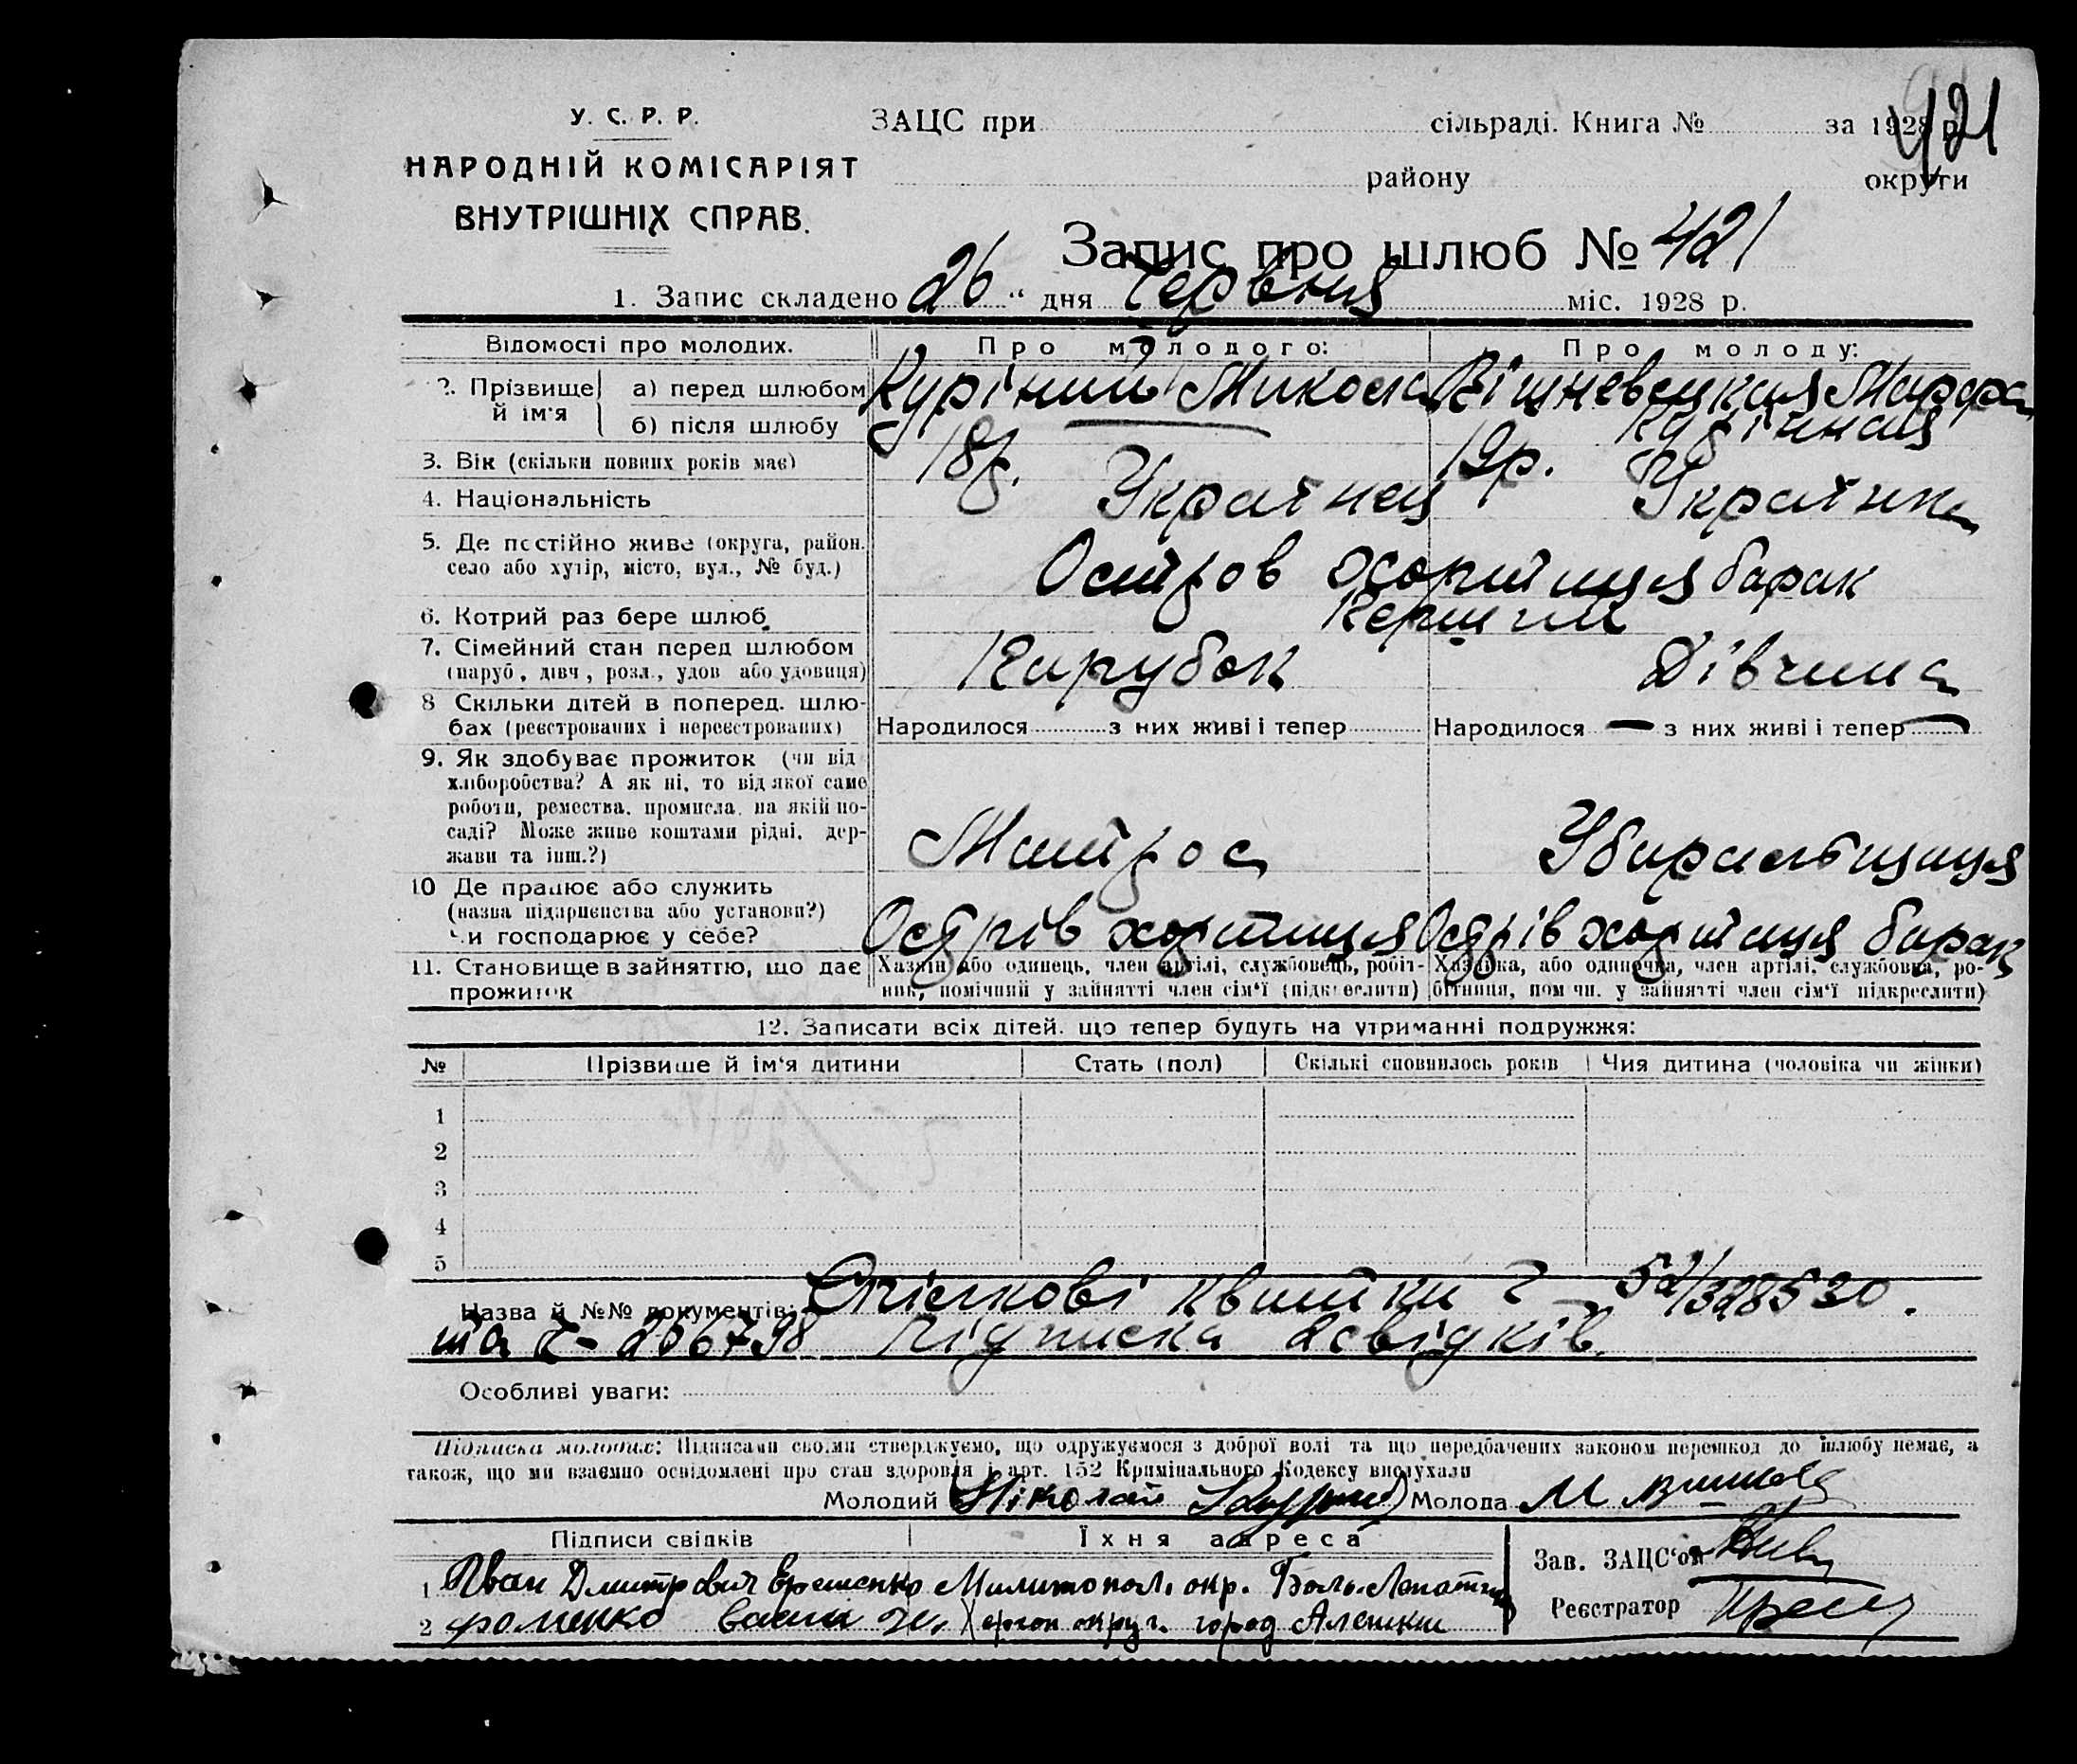 421
У. С. Р. Р.
НАРОДНІЙ КОМІСАРІЯТ
ВНУТРІШНІХ СПРАВ.
ЗАЦС при сільраді. Книга № за 1928 р.
району округи
Запис про шлюб № 421
1. Запис складено 26 “ дня Червня міс. 1928 р.
Відомості про молодих. Про молодого: Про молоду:
2. Прізвище й ім'я
а) перед шлюбом Курінний Микола Вішневецкая Марфа
б) після шлюбу Курінная
3. Вік (скільки повних років має) 18р. 19р.
4. Національність Українец Українка
5. Де постійно живе (округа, район. село або хутір, місто, вул., № буд.) Остров Хортиця барак
6. Котрий раз бере шлюб Перший
7. Сімейний стан перед шлюбом Парубок Дівчина
(паруб., дівч., розл., удов або удовиця)
8 Скільки дітей в поперед. шлюбах (реєстрованих і нереєстрованих) Народилося з них живі і тепер Народилося — з них живі і тепер —
9. Як здобуває прожиток (чи від
хліборобства? А як ні, то від якої саме
роботи, ремества, промисла, на якій посаді? Може живе коштами рідні, держави та інш.?) Матрос Убиральщиця
10 Де працює або служить
(назва підприємства або установи?)
чи господарює у себе? Острів Хортиця Острів Хортиця барак
11. Становище в зайняттю, що дає
прожиток
Хазяїн або одинець, член артілі, службовець, робітник, помічний у зайнятті член сім'ї (підкреслити)
Хазяйка, або одиночка, член артілі, службовка, робітниця, помічн. у зайнятті член сім'ї підкреслити)
12. Записати всіх дітей, що тепер будуть на утриманні подружжя:
№ Прізвише й ім'я дитини Стать (пол) Скількі сповнилось років Чия дитина (чоловіка чи жінки)
1
2
3
4
5
Назва й №№ документів: Спілкові квитки 52/328530.
та 206798 підписка 2 свідків.
Особливі уваги:
Підписка молодих: Підписами своїми стверджуємо, що одружуємося з доброї волі та що передбачених законом перешкод до шлюбу немає, а
також, що ми взаємно освідомлені про стан здоровія і арт. 152 Кримінального Кодексу вислухали
Молодий Ніколай Молода М
Підписи свідків Їхня адреса
1 Иван Дмитрович Еременко Милитопол. окр. Боль.
2 Фоменко Херсон округ. город Алешки
Зав. ЗАЦС'ом
Реєстратор